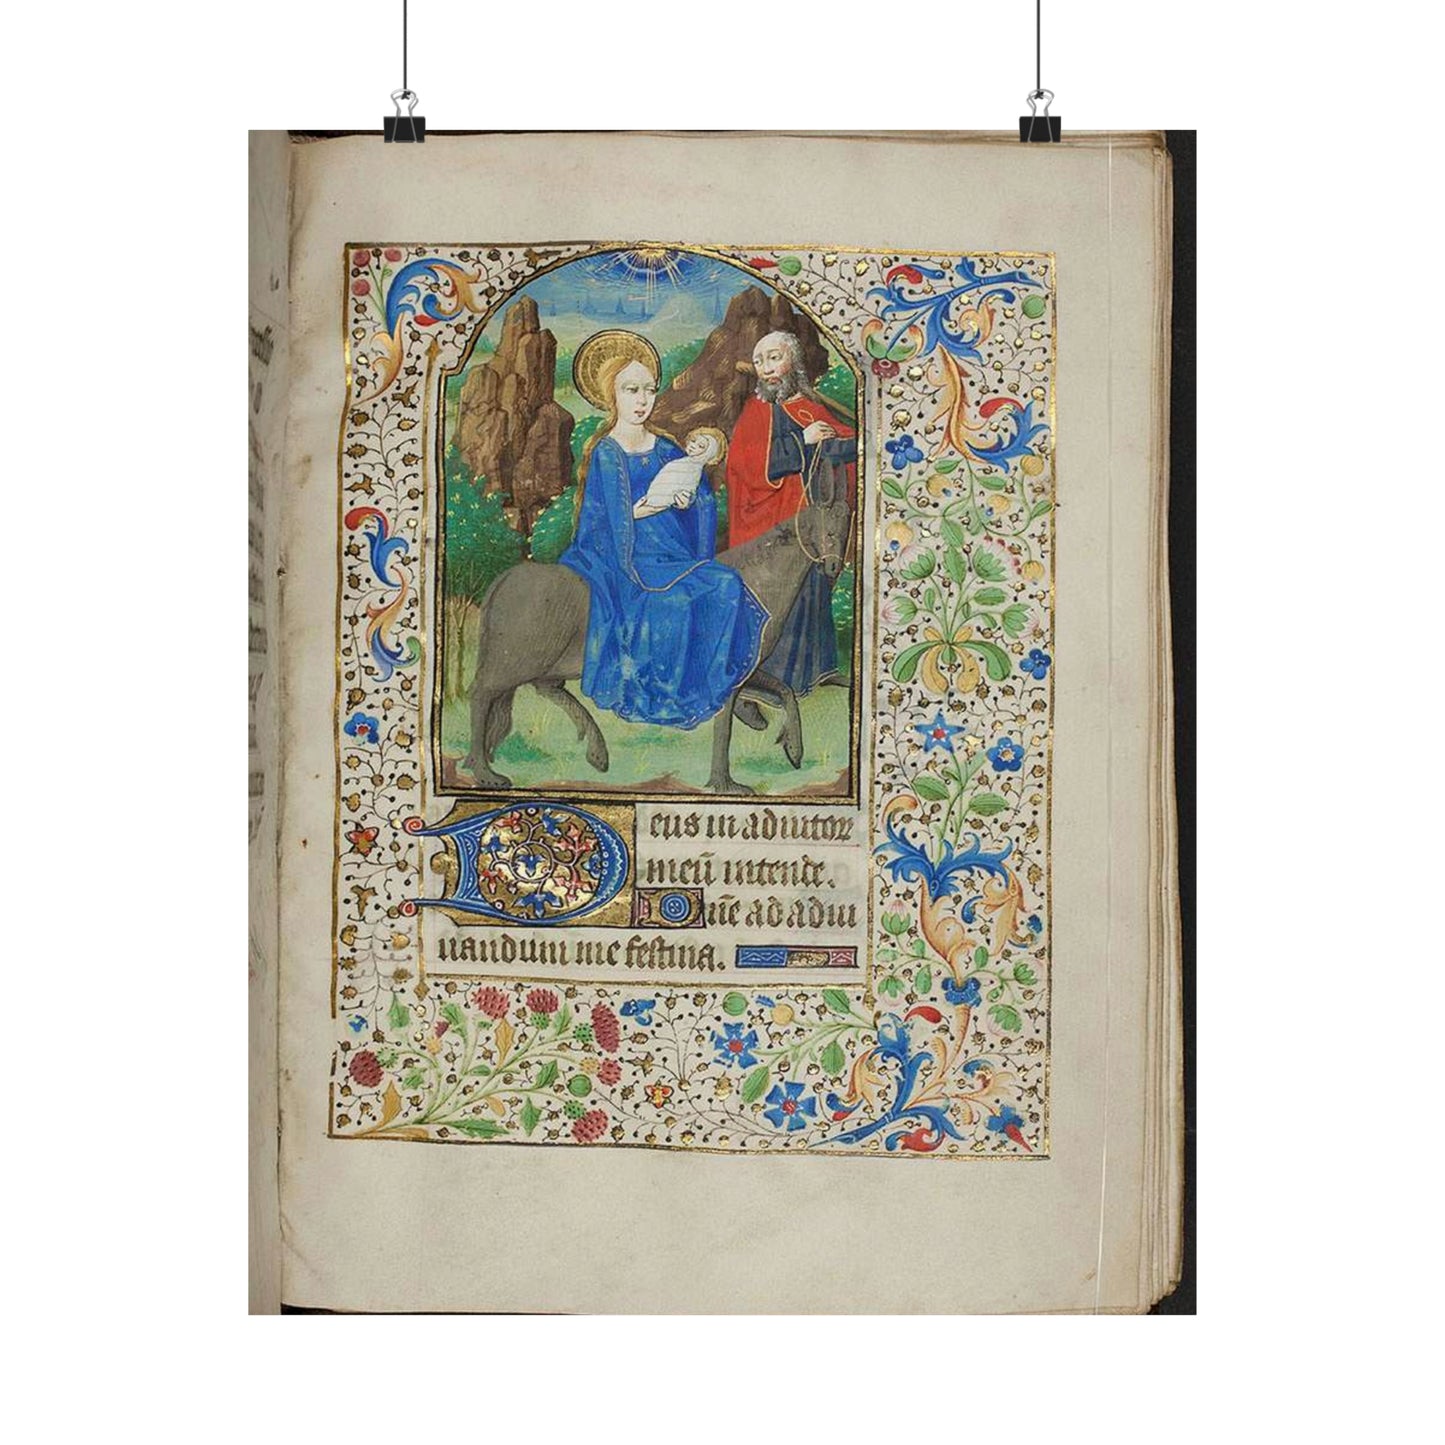 Deus in adiutor
meū intende.
Dn̄e ad adiu
uandum me festina.